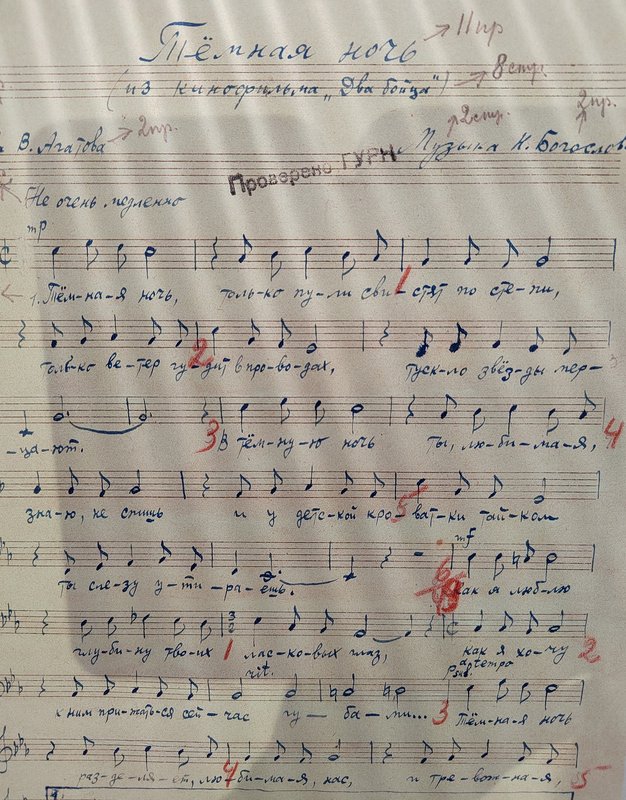 Тёмная ночь → 11пр
(из кинофильма „Два бойца") → 8стр.
В. Агатова → 2пр. 2стр. 2пр.
Музыка Н. Богослов
Проверено ГУРК
Не очень медленно
mp
1. Тём-на-я ночь, толь-ко пу-ли сви-стят по сте-пи,
1
толь-ко ве-тер гу-дит в про-во-дах, туск-ло звёз-ды мер-
2
-ца-ют. В тём-ну-ю ночь ты, лю-би-ма-я,
3 4
зна-ю, не спишь и у детс-кой кро-ват-ки тай-ком
5
mf
ты сле-зу у-ти-ра-ешь. Как я люб-лю
глу-би-ну тво-их лас-ко-вых глаз, как я хо-чу
1 2
rit. a tempo
sub. p
к ним при-жать-ся сей-час гу-ба-ми... Тём-на-я ночь
3
раз-де-ля-ет, лю-би-ма-я, нас, и тре-вож-на-я,
4 5
1.